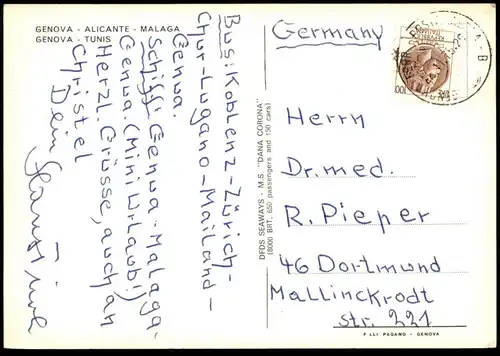 GENOVA - ALICANTE - MALAGA
GENOVA - TUNIS
Bus: Koblenz-Zürich-
Chur-Lugano-Mailand-
Genua.
Schiff: Genua-Malaga-
Genua. (Mini Urlaub!)
Herzl. Grüsse, auch an
Christel
Dein
DFDS SEAWAYS - M.S. "DANA CORONA"
(8000 BRT, 650 passengers and 150 cars)
Germany
100
Herrn
Dr. med.
R. Pieper
46 Dortmund
Mallinckrodt
str. 221
F.LLI PAGANO - GENOVA